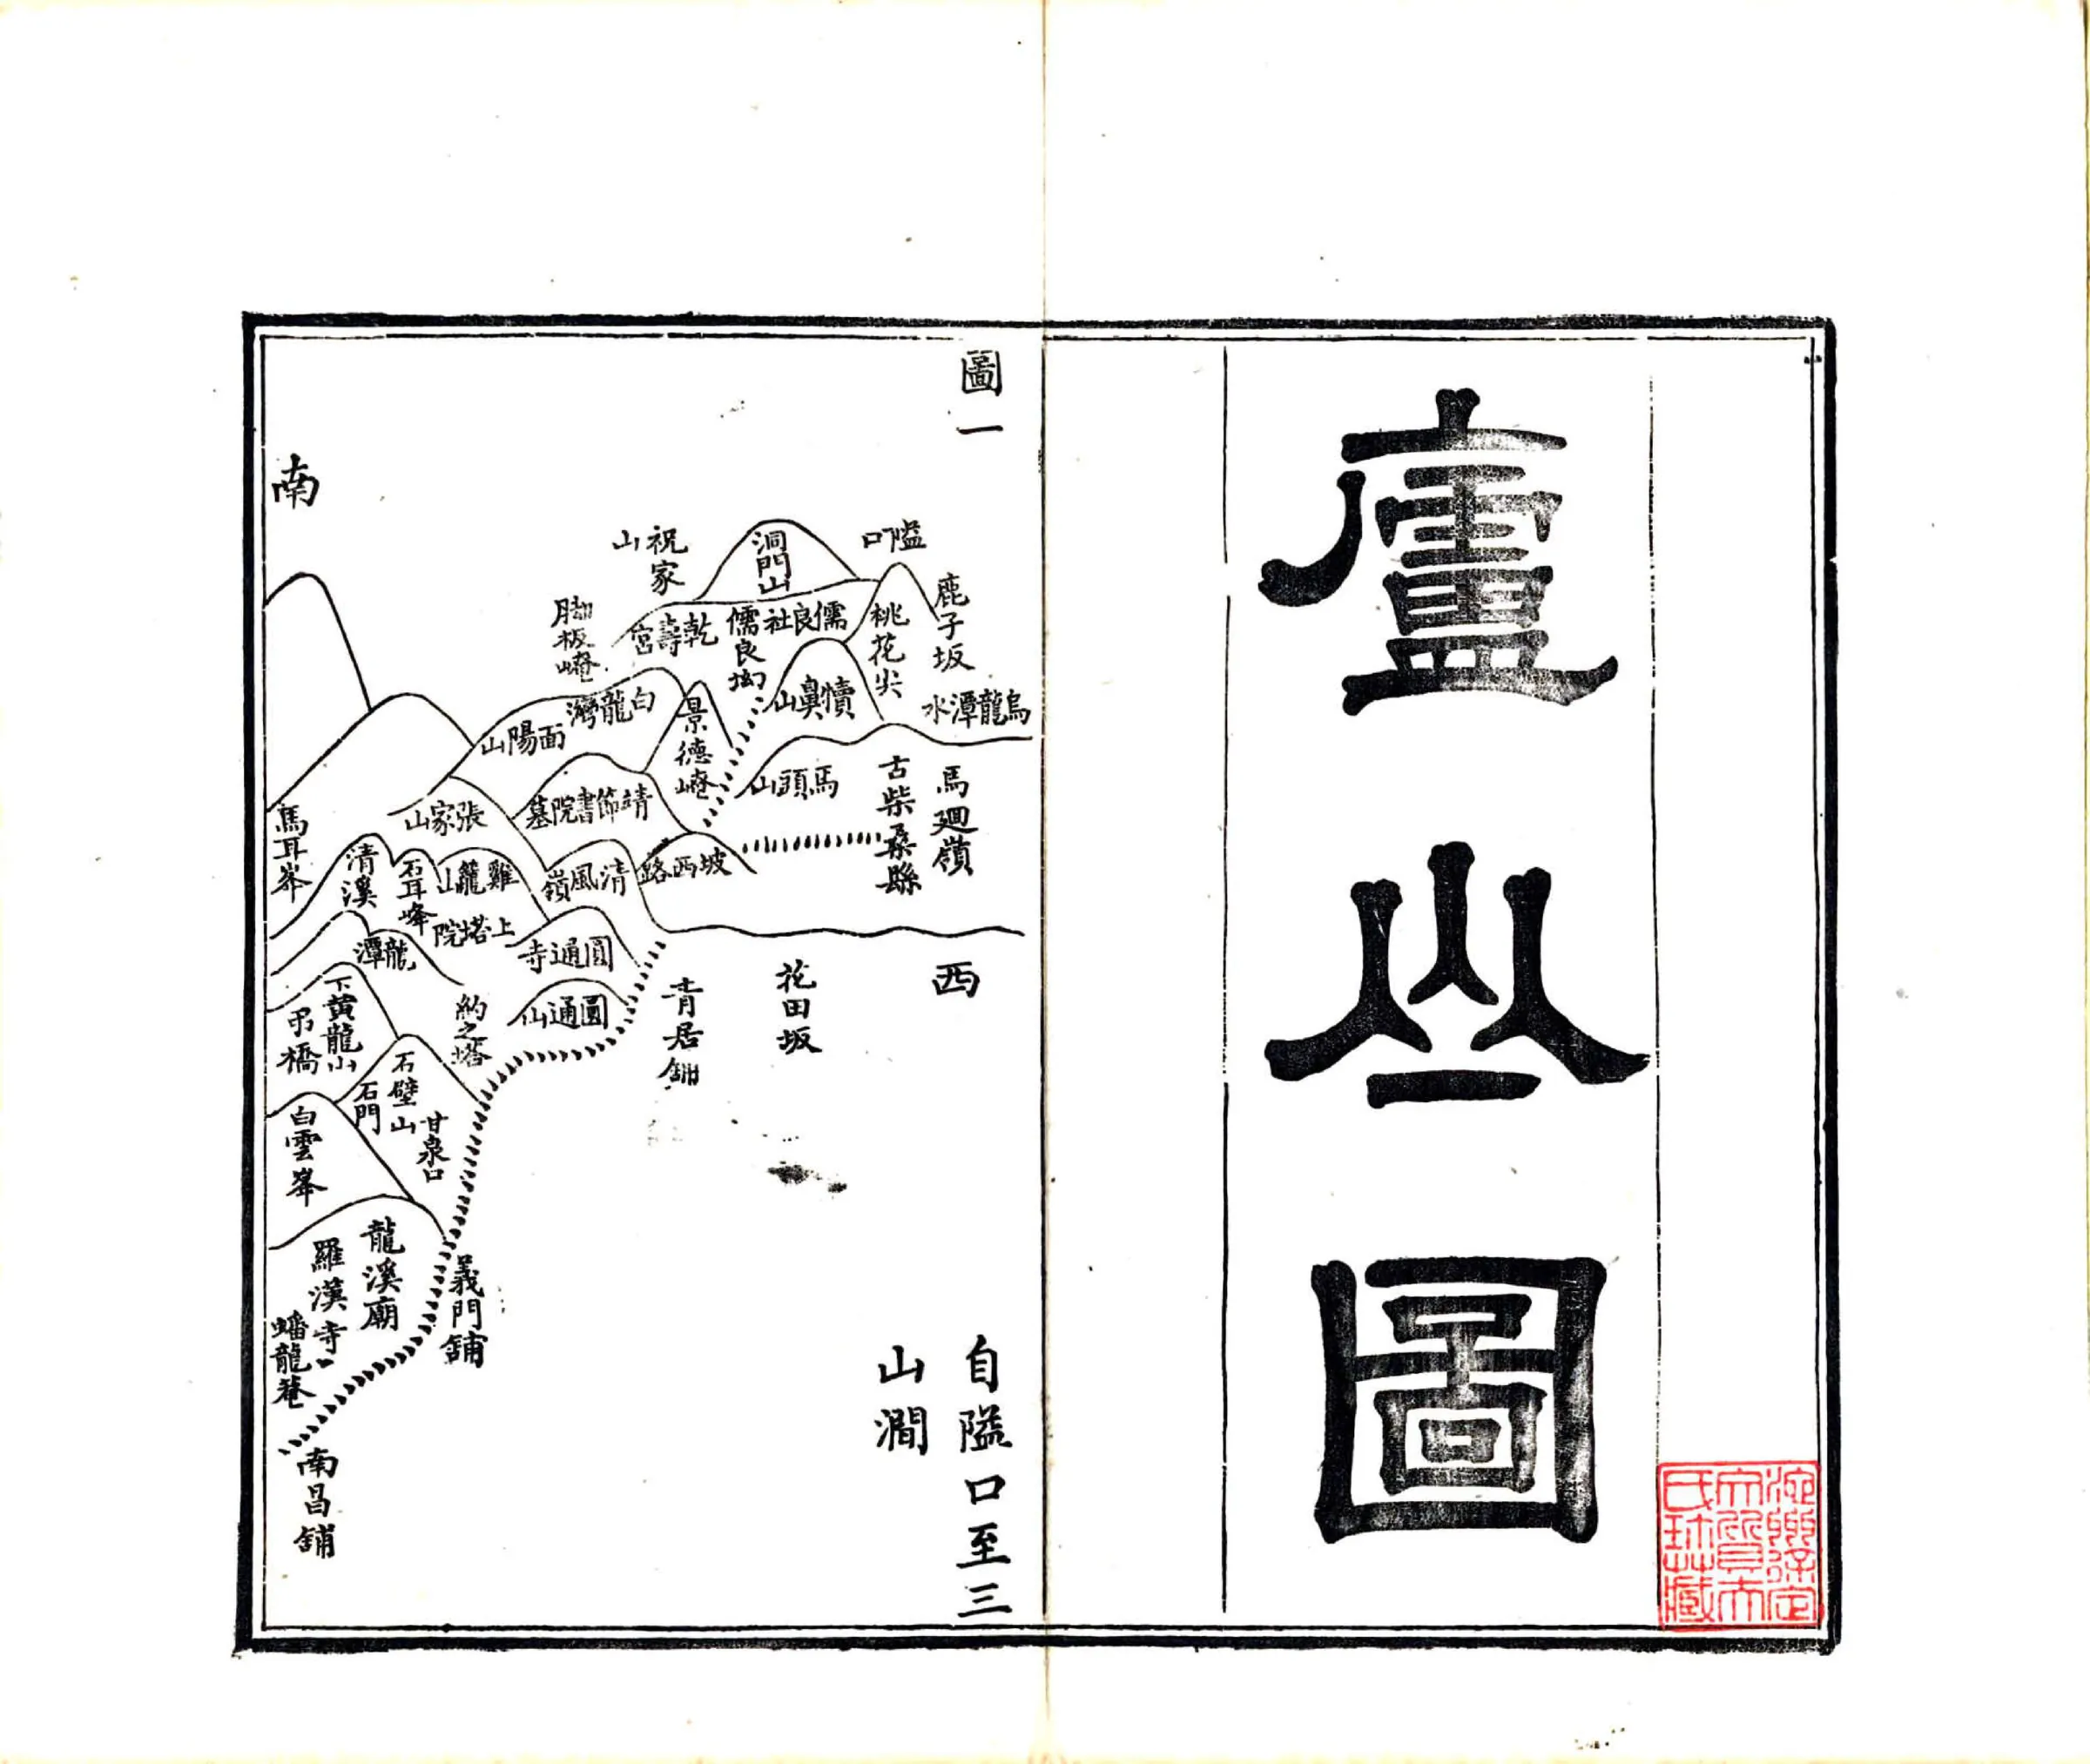 廬山圖
圖一
自隘口至三
山澗
西
南
隘口
鹿子坂
烏龍潭水
桃花尖
洞門山
儒良社
儒良坳
犢鼻山
祝家山
乾壽宮
脚板崦
白龍灣
面陽山
景德崦
馬頭山
古柴桑縣
馬廻嶺
靖節書院墓
張家山
坡西路
清風嶺
雞籠山
石耳峰
清溪
馬耳峯
上塔院
龍潭
圓通寺
圓通仙
花田坂
青居舖
約之塔
下黃龍山
吊橋
石壁山
石門
甘泉口
白雲峯
龍溪廟
羅漢寺
蟠龍菴
義門舖
南昌舖